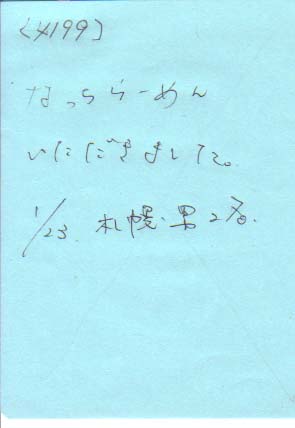 [4199]
なっちらーめん
いただきました。
1/23. 札幌・男2名.